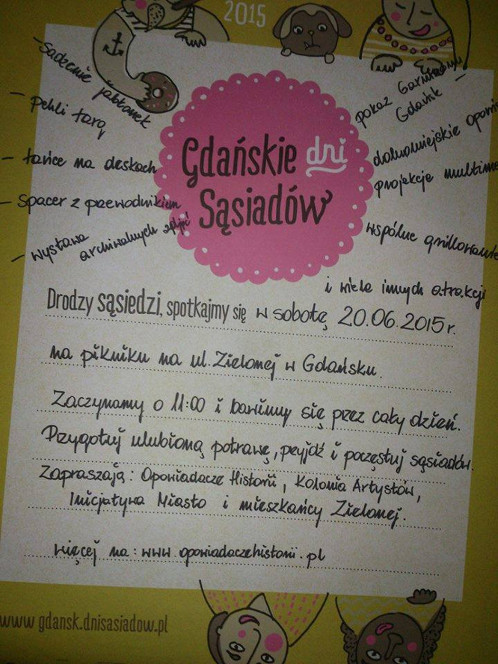 2015
- Sadzenie jabłonek
- pchli targ
- tańce na deskach
- spacer z przewodnikiem
- wystawa archiwalnych zdjęć
Gdańskie dni
Sąsiadów
pokaz
Gdańsk -
projekcje
wspólne
i wiele innych atrakcji
Drodzy sąsiedzi, spotkajmy się w sobotę 20.06.2015r.
na pikniku na ul. Zielonej w Gdańsku.
Zaczynamy o 11:00 i bawimy się przez cały dzień.
Przygotuj ulubioną potrawę, przyjdź i poczęstuj sąsiadów.
Zapraszają: Opowiadacze Historii, Kolonia Artystów,
Inicjatywa Miasto i mieszkańcy Zielonej.
więcej na: www.opowiadaczehistorii.pl
www.gdansk.dnisasiadow.pl